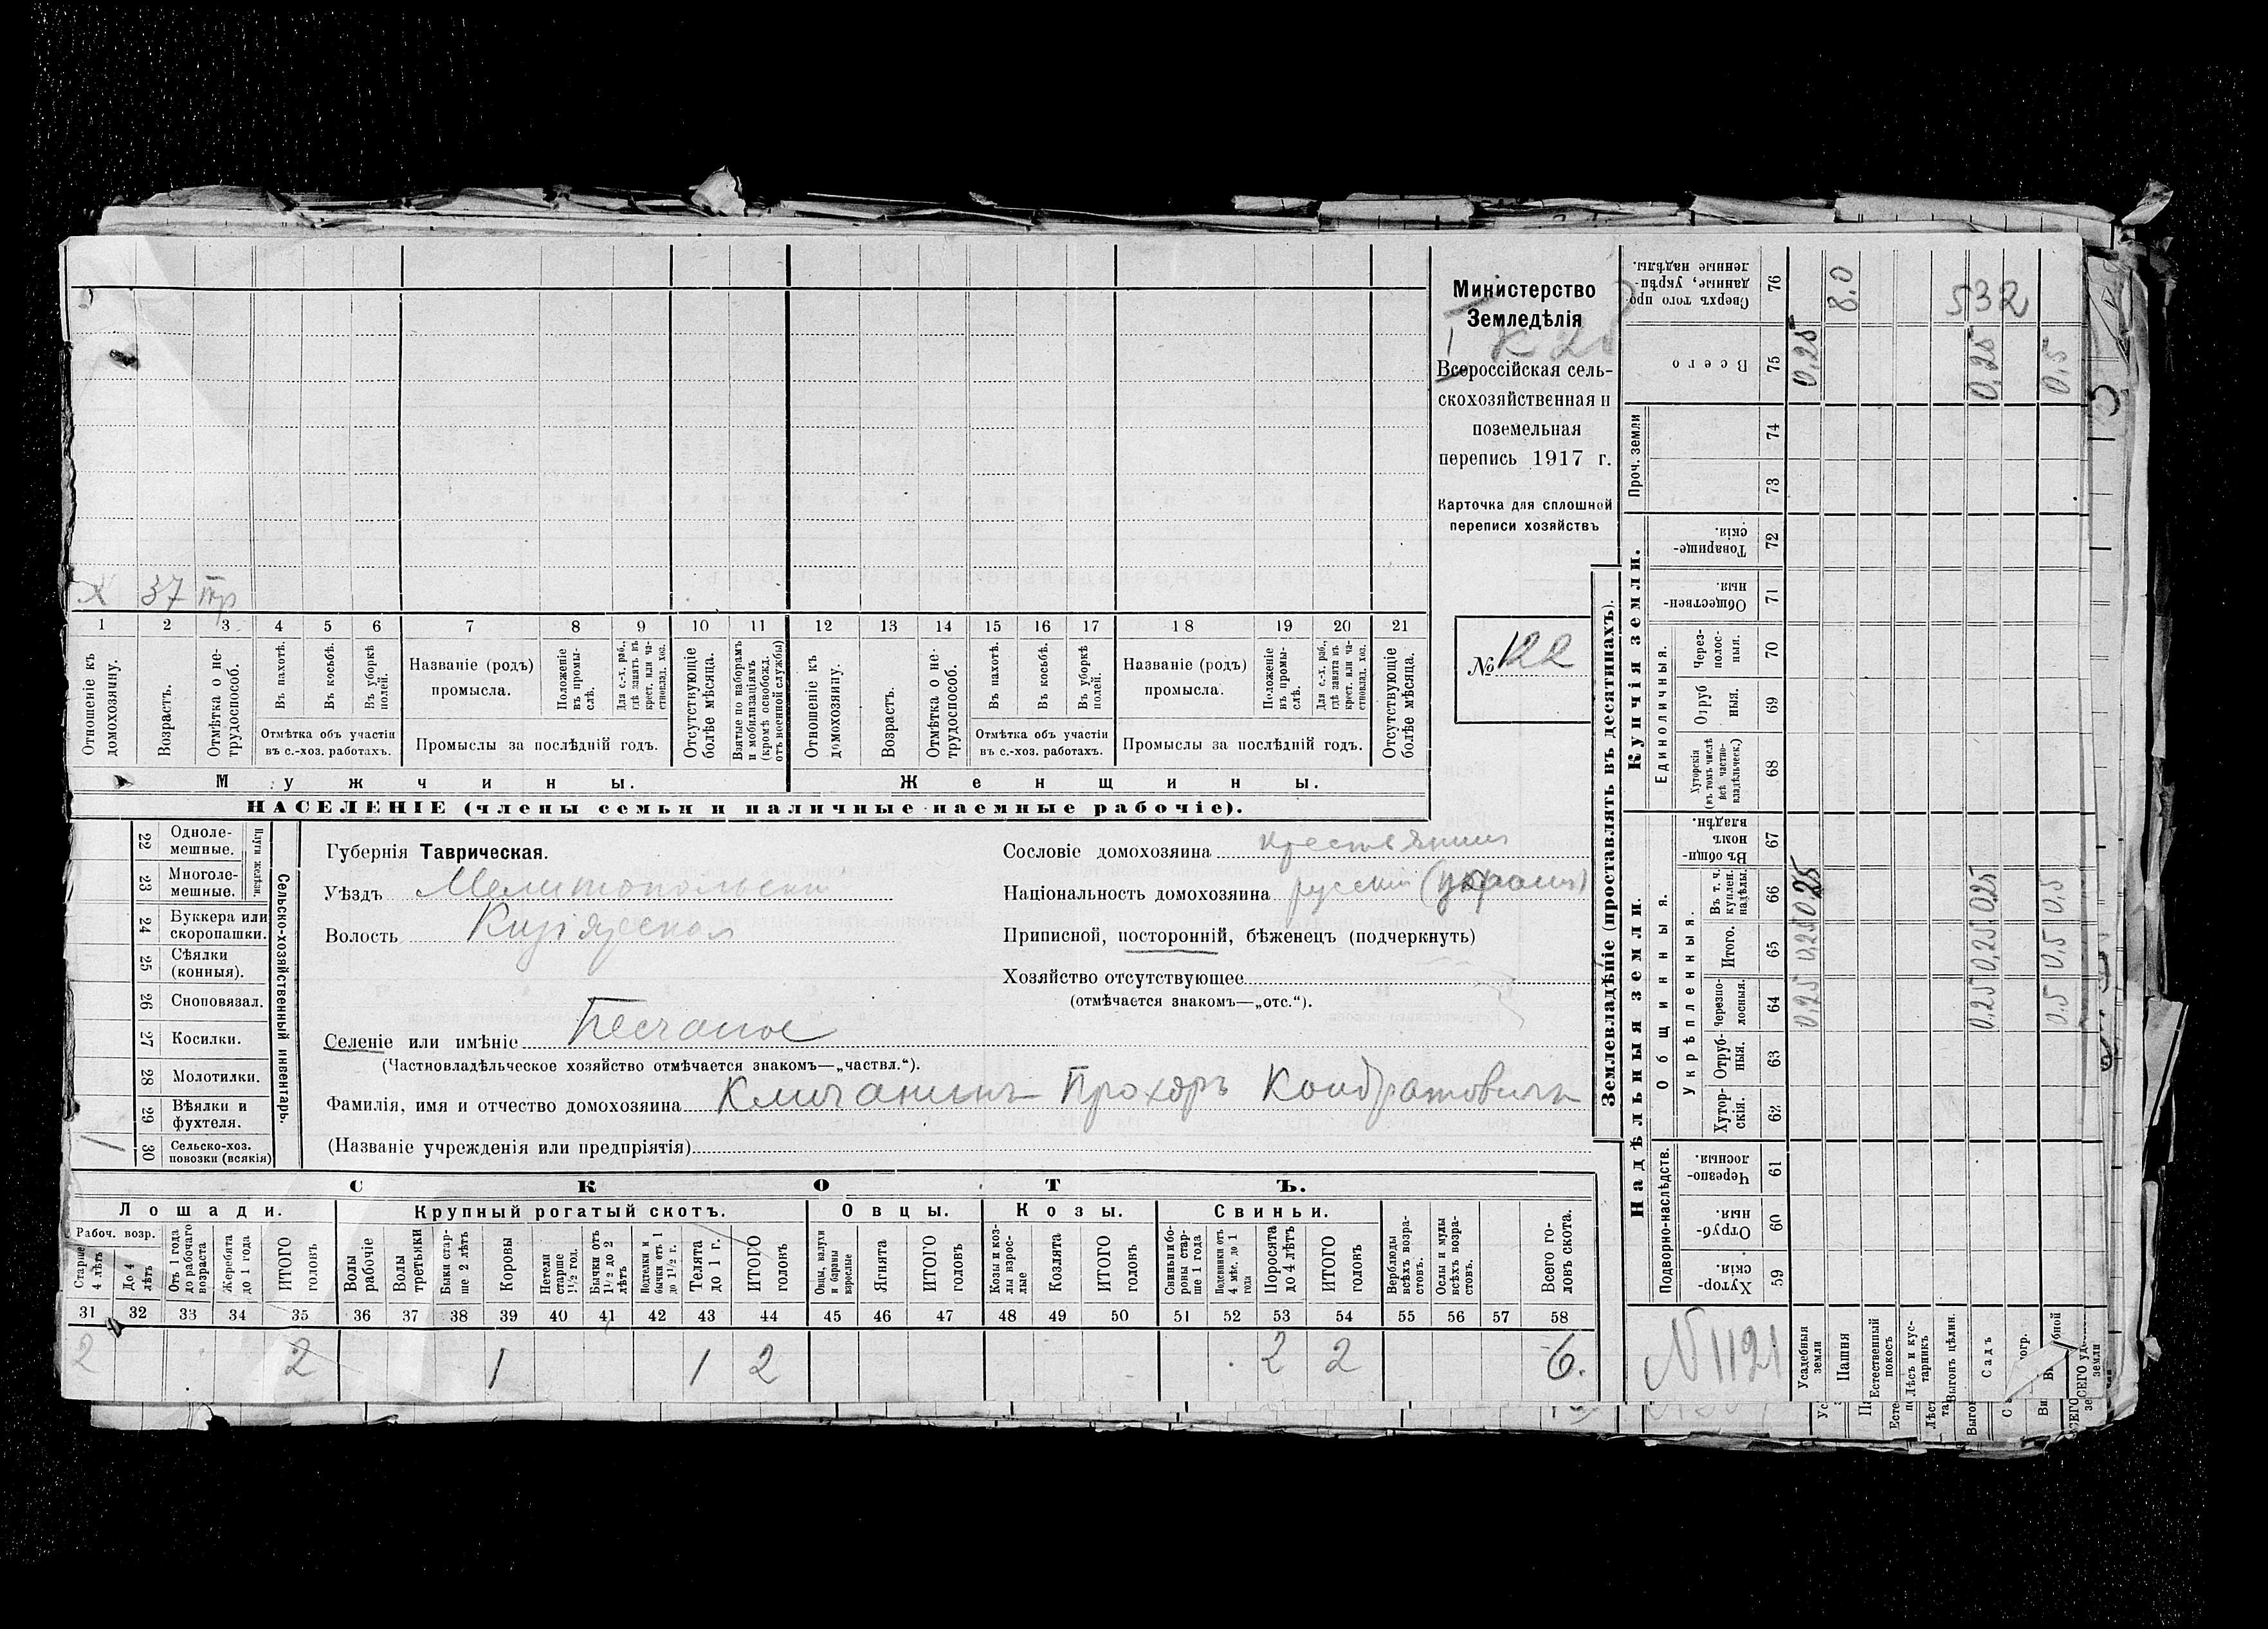 Министерство
Земледѣлія
Всероссійская сель-
скохозяйственная и
поземельная
перепись 1917 г.
Карточка для сплошной
переписи хозяйствъ
№ 122
Х 37
1 2 3 4 5 6 7 8 9 10 11 12 13 14 15 16 17 18 19 20 21
Отношеніе къ домохозяину.
Возрастъ.
Отмѣтка о не-трудоспособ.
Въ пахотѣ.
Въ косьбѣ.
Въ уборкѣ полей.
Отмѣтка объ участіи
въ с.-хоз. работахъ.
Названіе (родъ)
промысла.
Положеніе въ промы-слѣ.
Для с.-х. раб., гдѣ занятъ въ крест. или ча-стновлад. хоз.
Промыслы за послѣдній годъ.
Отсутствующіе болѣе мѣсяца.
Взятые по наборамъ и мобилизаціямъ (кромѣ освобожд. отъ военной службы)
Отношеніе къ домохозяину.
Возрастъ.
Отмѣтка о не-трудоспособ.
Въ пахотѣ.
Въ косьбѣ.
Въ уборкѣ полей.
Отмѣтка объ участіи
въ с.-хоз. работахъ.
Названіе (родъ)
промысла.
Положеніе въ промы-слѣ.
Для с.-х. раб., гдѣ занята въ крест. или ча-стновлад. хоз.
Промыслы за послѣдній годъ.
Отсутствующіе болѣе мѣсяца.
Мужчины.
Женщины.
НАСЕЛЕНІЕ (члены семьи и наличные наемные рабочіе).
22 Одноле-мешные.
23 Многоле-мешные.
Плуги желѣзн.
24 Буккера или скоропашки.
25 Сѣялки (конныя).
26 Сноповязал.
27 Косилки.
28 Молотилки.
29 Вѣялки и фухтеля.
1 30 Сельско-хоз. повозки (всякія)
Сельско-хозяйственный инвентарь.
Губернія Таврическая.
Уѣздъ Мелитопольскій
Волость Кизіярская
Селеніе или имѣніе Песчаное
(Частновладѣльческое хозяйство отмѣчается знакомъ—„частвл.“).
Фамилія, имя и отчество домохозяина Кличанинъ Прохоръ Кондратовичъ
(Названіе учрежденія или предпріятія)
Сословіе домохозяина крестьянин
Національность домохозяина русскій
Приписной, посторонній, бѣженец (подчеркнуть)
Хозяйство отсутствующее
(отмѣчается знакомъ—„отс.“).
СКОТЪ.
Лошади.
Крупный рогатый скотъ.
Овцы.
Козы.
Свиньи.
Рабоч. возр.
Старше 4 лѣтъ
До 4 лѣтъ
Отъ 1 года до рабочаго возраста
Жеребята до 1 года
ИТОГО головъ
Волы рабочіе
Волы третьяки
Быки стар-ше 2 лѣтъ
Коровы
Нетели старше 1½ год.
Бычки отъ 1½ до 2 лѣтъ
Подтелки и бычки отъ 1 до 1½ г.
Телята до 1 г.
ИТОГО головъ
Овцы, валухи и бараны взрослые
Ягнята
ИТОГО головъ
Козы и коз-лы взрос-лые
Козлята
ИТОГО головъ
Свиньи и бо-ровы стар-ше 1 года
Подсвинки отъ 4 мѣс. до 1 года
Поросята до 4 лѣтъ
ИТОГО головъ
Верблюды всѣхъ возра-стовъ.
Ослы и мулы всѣхъ возра-стовъ.
Всего го-ловъ скота.
31 32 33 34 35 36 37 38 39 40 41 42 43 44 45 46 47 48 49 50 51 52 53 54 55 56 57 58
2 2 1 1 2 2 2 6.
Землевладѣніе (проставлять въ десятинахъ).
Надѣльныя земли.
Купчія земли.
Проч. земли
Подворно-наслѣдств.
Общинныя.
Укрѣпленныя.
Единоличныя.
Сверхъ того про-данные, укрѣп-ленные надѣлы. 76 8.0 532
Всего 75 0,25 0,25 0,5
74
73
Товарище-скія. 72
Обществен-ныя. 71
Через-полос-ныя. 70
Отруб ныя. 69
Хуторскія (въ томъ числѣ всѣ частно-владѣльческ.) 68
Въ общи-номъ владѣн. 67
Въ т. ч. куплен. надѣлы. 66 0,25 0,25 0,5
Итого. 65 0,25 0,25 0,5
Черезпо-лосныя. 64 0,25 0,25 0,5
Отруб-ныя. 63
Хутор-скія. 62
Черезпо-лосныя. 61
Отруб-ныя. 60
Хутор-скія. 59
№ 1121
Усадебныя земли
Пашня
Естественный покосъ
Лѣсъ и кус-тарникъ
Выгонъ цѣлин.
Садъ